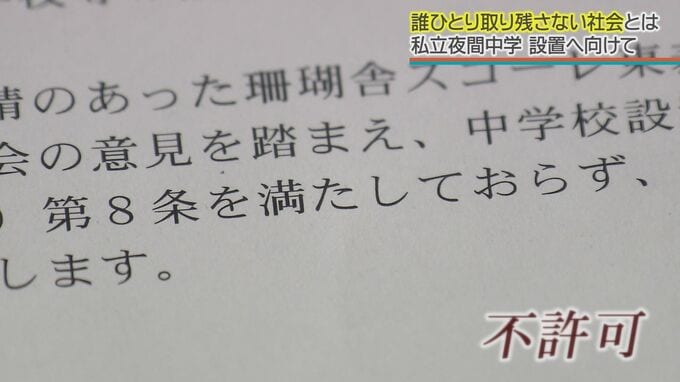 誰ひとり取り残さない社会とは
私立夜間中学 設置へ向けて
請のあった珊瑚舎スコーレ東
会の意見を踏まえ、中学校設
）第８条を満たしておらず、
します。
不許可